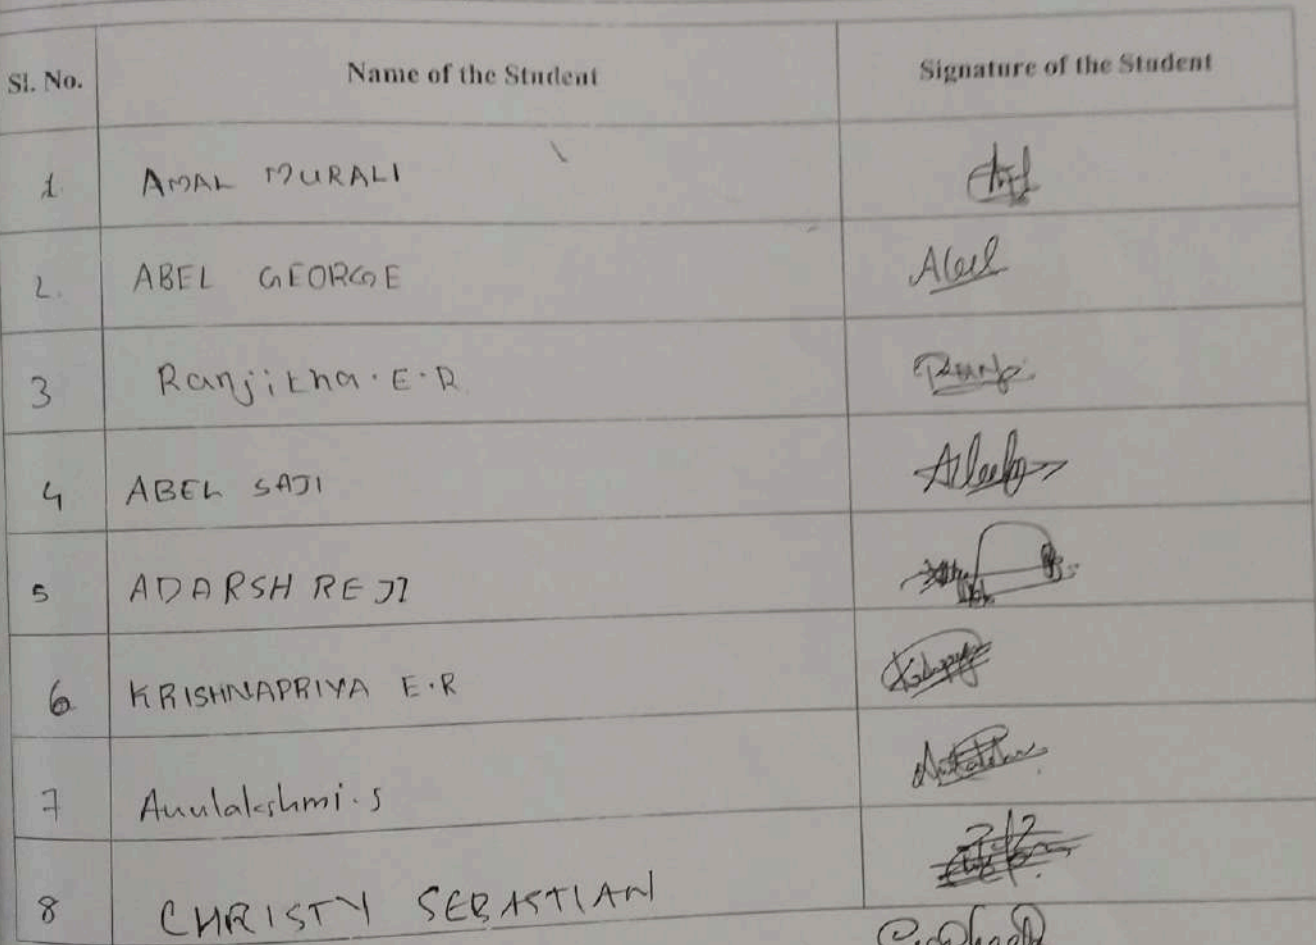 Sl. No. Name of the Student Signature of the Student
1 AMAL MURALI
2. ABEL GEORGE Abel
3 Ranjitha.E.R
4 ABEL SAJI
5 ADARSH REJI
6 KRISHNAPRIYA E.R
7 Anulakshmi.S
8 CHRISTY SEBASTIAN